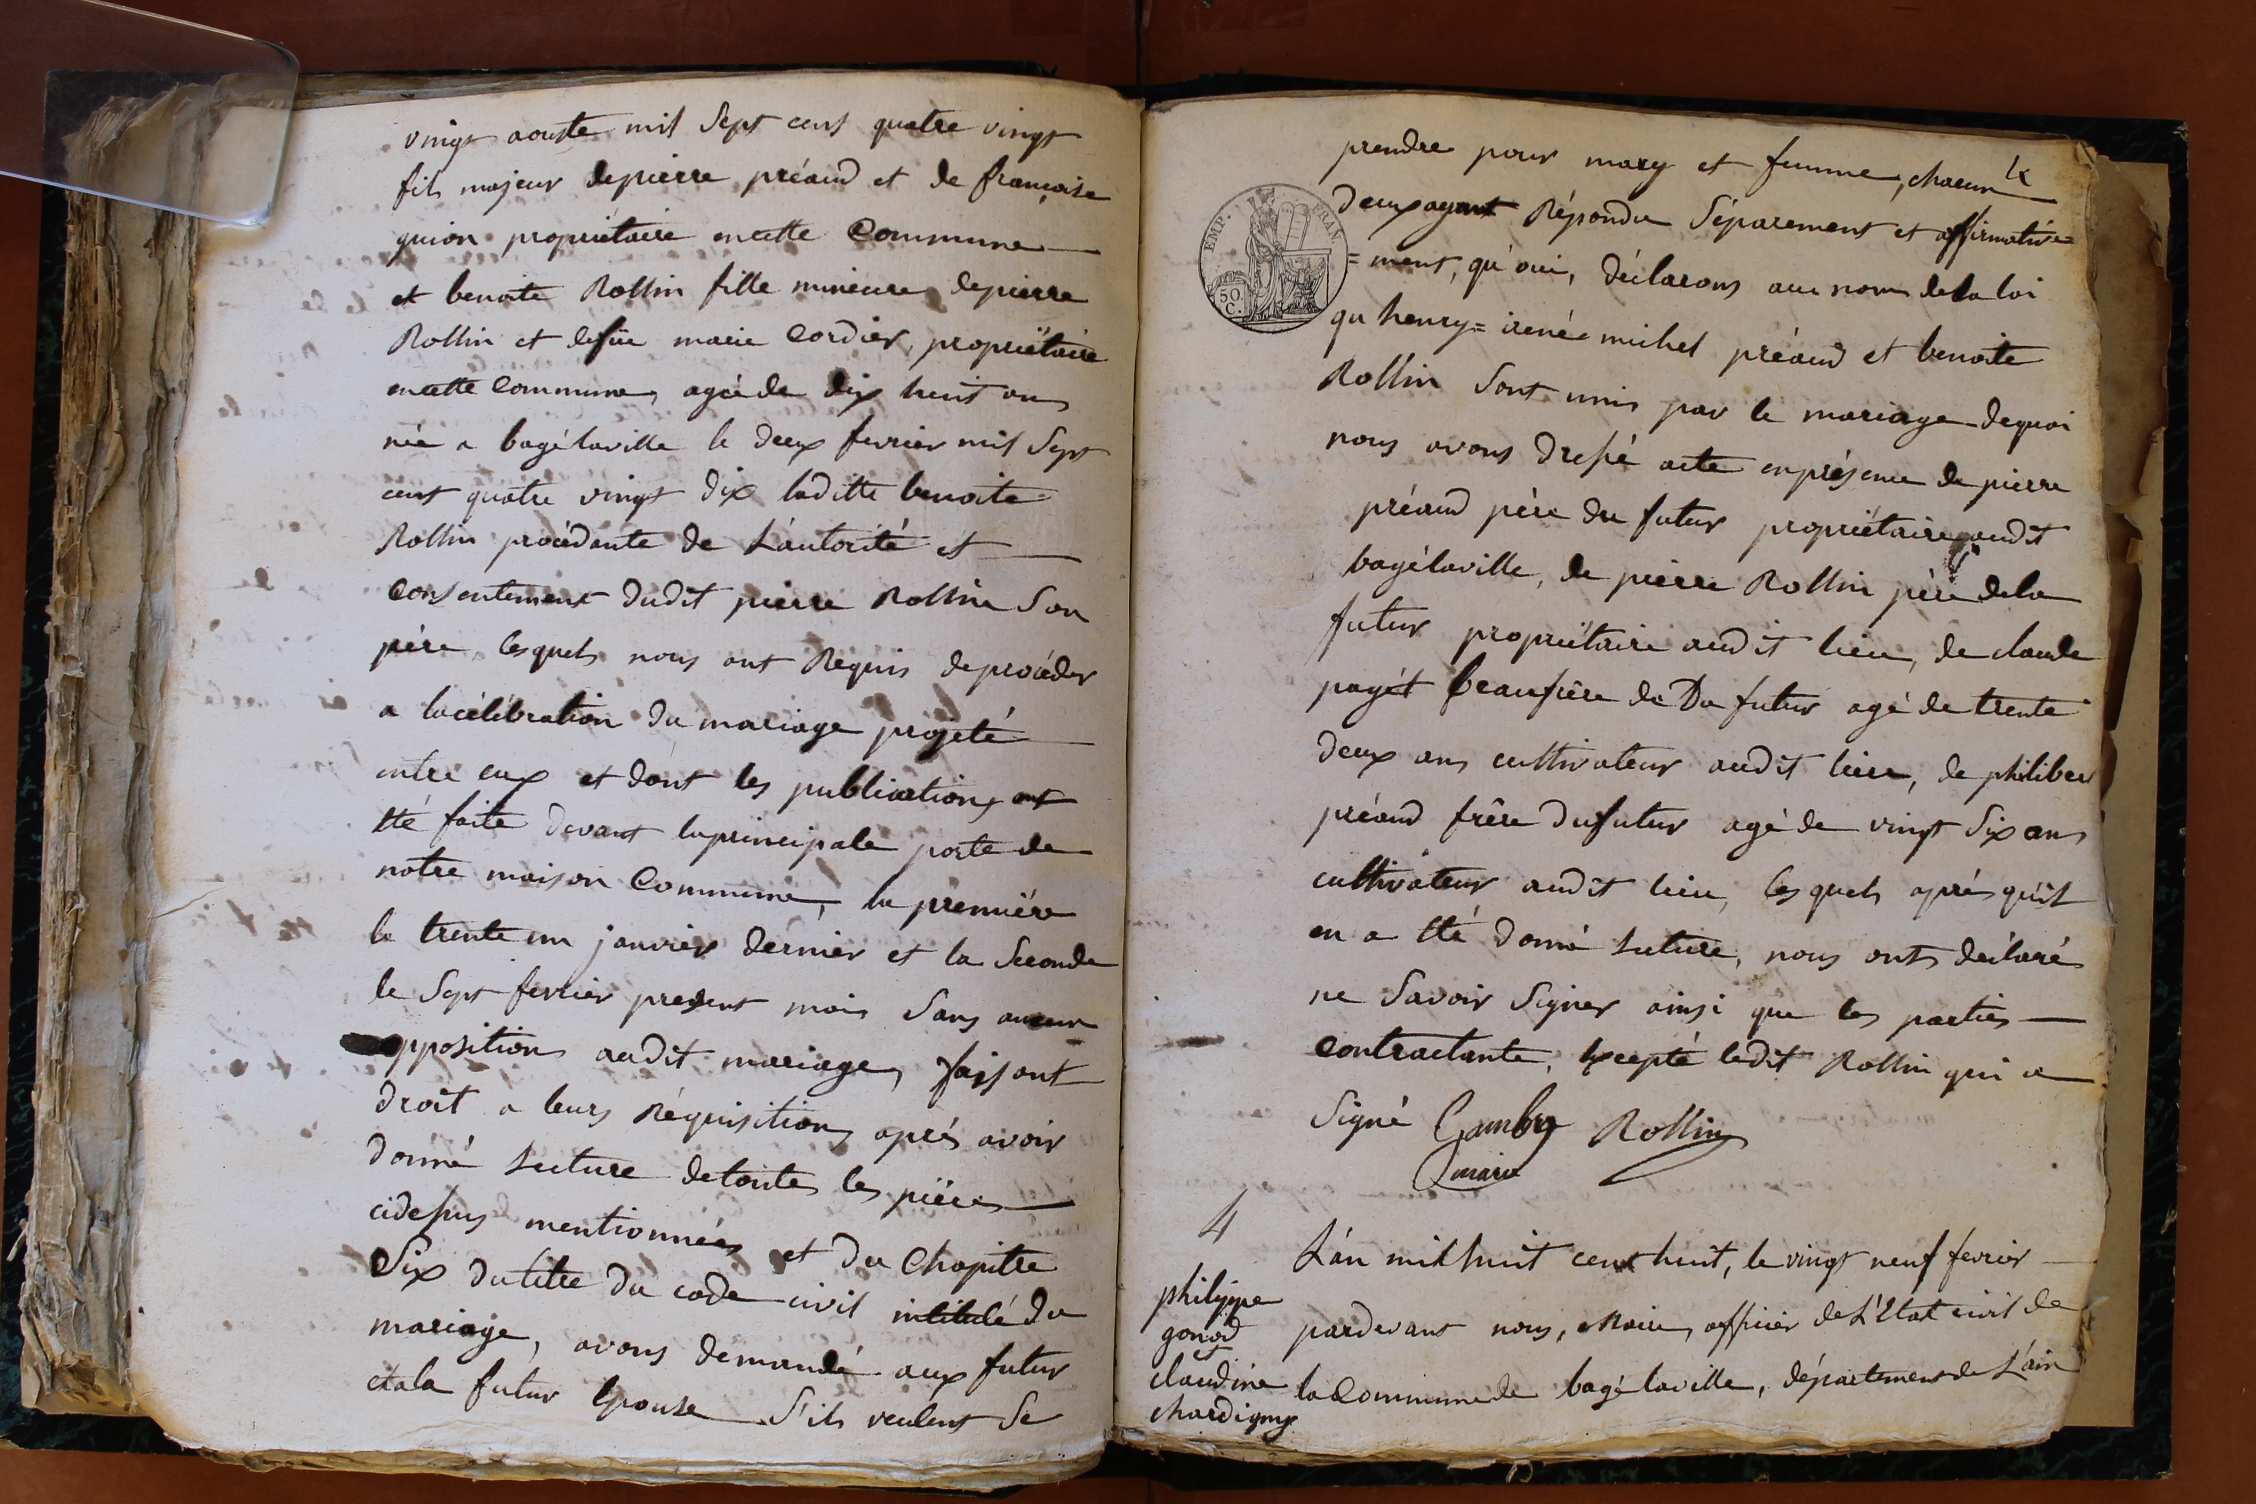 vingt aouste mil Sept cens quatre vingt
fils majeur depierre préaud et de françoise
guion propriétaire encette Commune
et benoite Rollin fille mineure depierre
Rollin et defüe marie Cordier, propriétaire
encette Commune, agée de dix huit ans
née a bagélaville le deux fevrier mil Sept
cent quatre vingt dix laditte benoite
Rollin procédante de L'autorité et
Consentement dudit pierre Rollin Son
père, lesquels nous ont Requis deprocéder
a lacélébration du mariage projeté
entre eux et dont les publications ont
été faite devant laprincipale porte de
notre maison Commune, la première
le trente un janvier dernier et la Seconde
le Sept fevrier present mois Sans aucun
opposition audit mariage, faisant
droit a leurs Réquisitions après avoir
donné Lecture detoutes les pièces
cidessus mentionnées et du Chapitre
Six dutitre du code civil intitulé du
mariage, avons demandé aux futur
etala futur Epouse S'ils veulent Se
4
prendre pour mary et femme, chacun
deux ayant Répondu Séparement et affirmative=
=ment, qu'oui, déclarons au nom dela loi
qu henry=irené michel préaud et benoite
Rollin Sont unis par le mariage dequoi
nous avons dressé acte enprésence de pierre
préaud père du futur propriétaire audit
bagélaville, de pierre Rollin père dela
futur propriétaire audit lieu, de claude
pagét beaufrère de Du futur agé de trente
deux ans cultivateur audit lieu, de philiber
préaud frère dufutur agé de vingt Six ans
cultivateur audit lieu, lesquels après qu'il
en a été donné Lecture, nous ont déclaré
ne Savoir Signer ainsi que les parties
contractante, Excepté ledit Rollin qui a
Signé Gambry Rollin
maire
EMP. FRAN.
50 C.
4
philippe
gonod
et
claudine
chardigny
L'an mil huit cent huit, le vingt neuf fevrier
pardevant nous, Maire, officier de L'Etat civil de
la Commune de bagélaville, département de L'ain